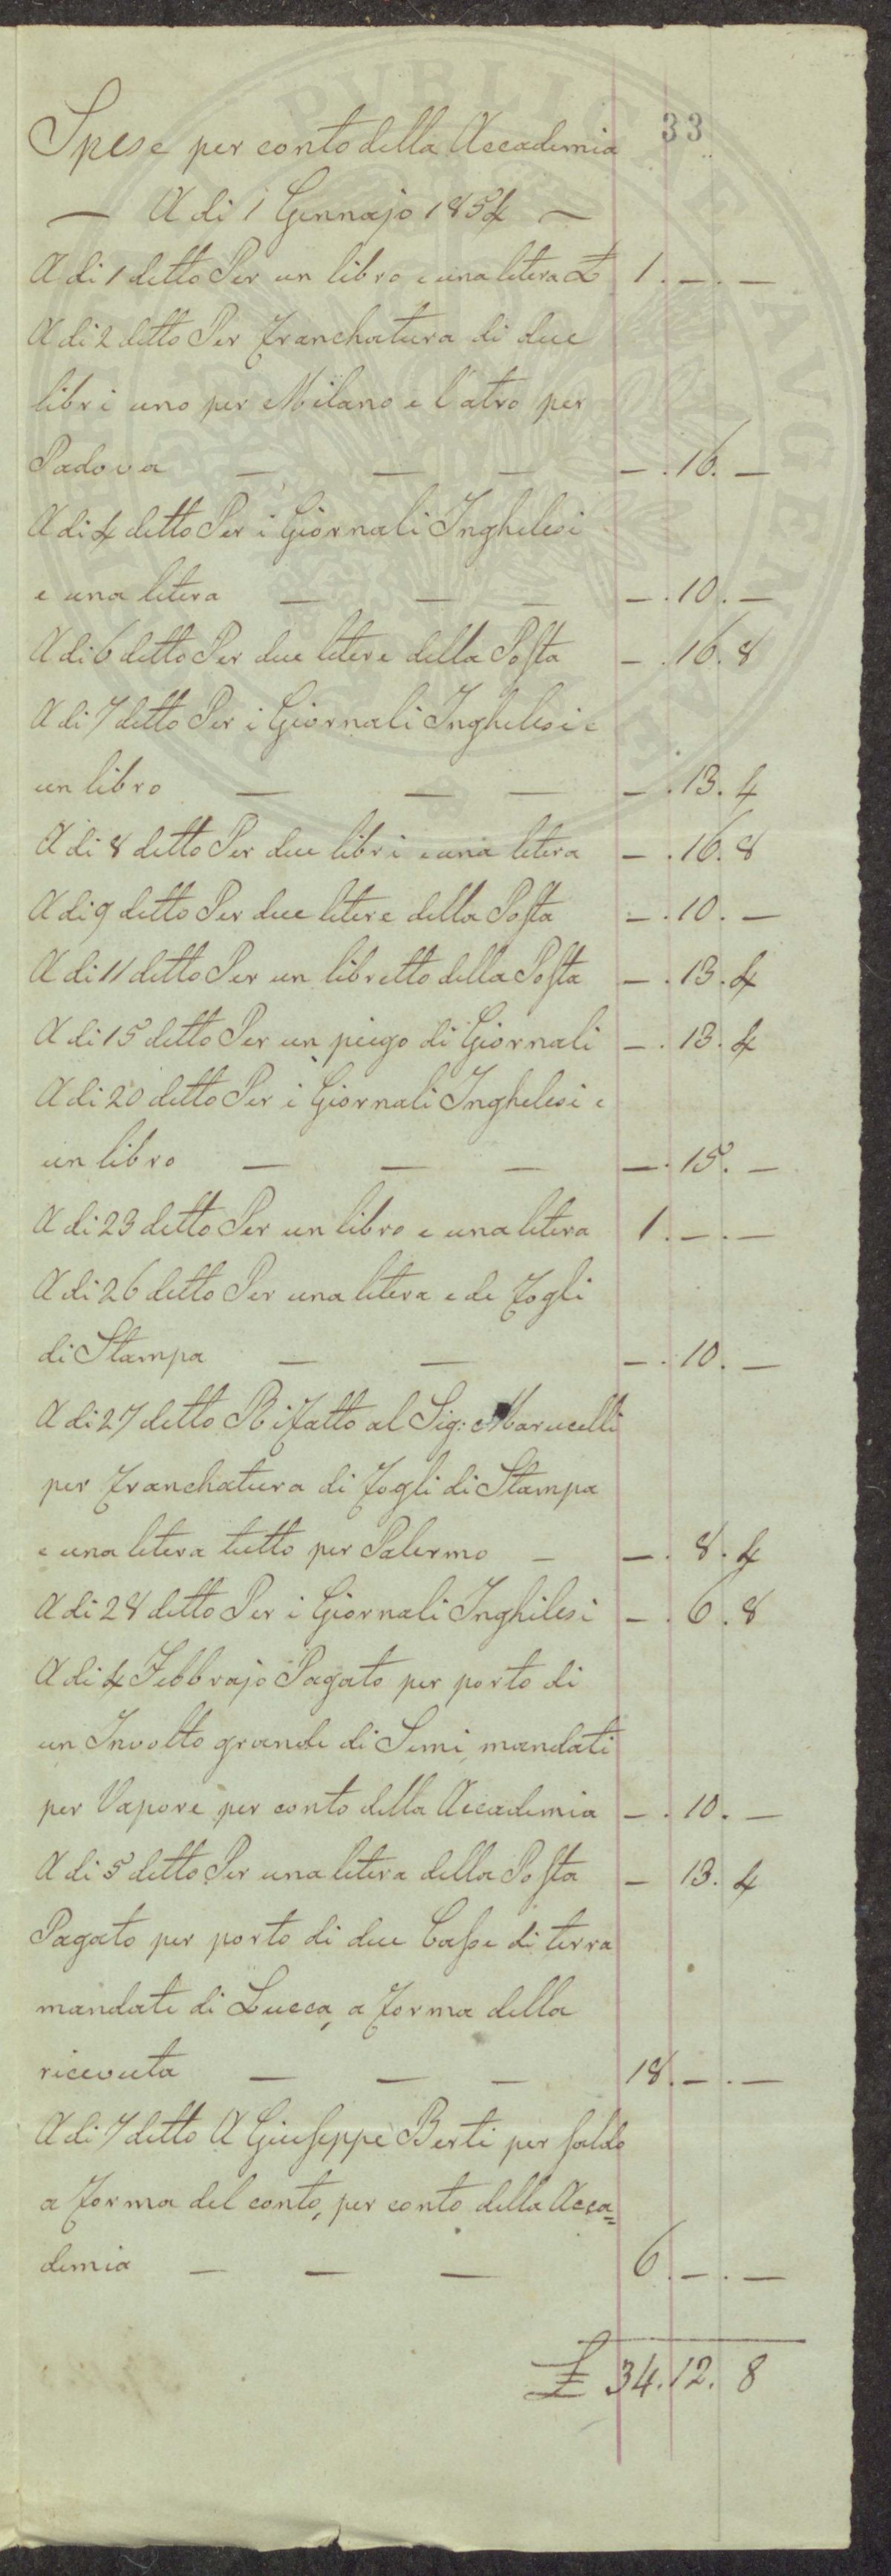 33
Spese per conto della Accademia
— A di 1 Gennajo 1854 —
A di 1 detto Per un libro e una litera £ 1. — . —
A di 2 detto Per franchatura di due
libri uno per Milano e l'atro per
Padova — — — — . 16. —
A di 4 detto Per i Giornali Inghelesi
e una litera — — — — . 10. —
A di 6 detto Per due litere della Posta — . 16. 8
A di 7 detto Per i Giornali Inghelesi e
un libro — — — — . 13. 4
A di 8 detto Per due libri e una litera — . 16. 8
A di 9 detto Per due litere della Posta — . 10. —
A di 11 detto Per un libretto della Posta — . 13. 4
A di 15 detto Per un piego di Giornali — . 13. 4
A di 20 detto Per i Giornali Inghelesi e
un libro — — — — . 15. —
A di 23 detto Per un libro e una litera 1. — . —
A di 26 detto Per una litera e de fogli
di Stampa — — — . 10. —
A di 27 detto Rifatto al Sig: Marucelli
per franchatura di fogli di Stampa
e una litera tutto per Palermo — — . 8. 4
A di 28 detto Per i Giornali Inghilesi — . 6. 8
A di 4 Febbrajo Pagato per porto di
un Involto grande di Semi, mandati
per Vapore per conto della Accademia — . 10. —
A di 5 detto Per una litera della Posta — 13. 4
Pagato per porto di due Casse di terra
mandate di Lucca, a forma della
riceuta — — — 18. — . —
A di 7 detto A Giuseppe Berti per saldo
a forma del conto, per conto della Acca=
demia — — — 6. — . —
£ 34. 12. 8